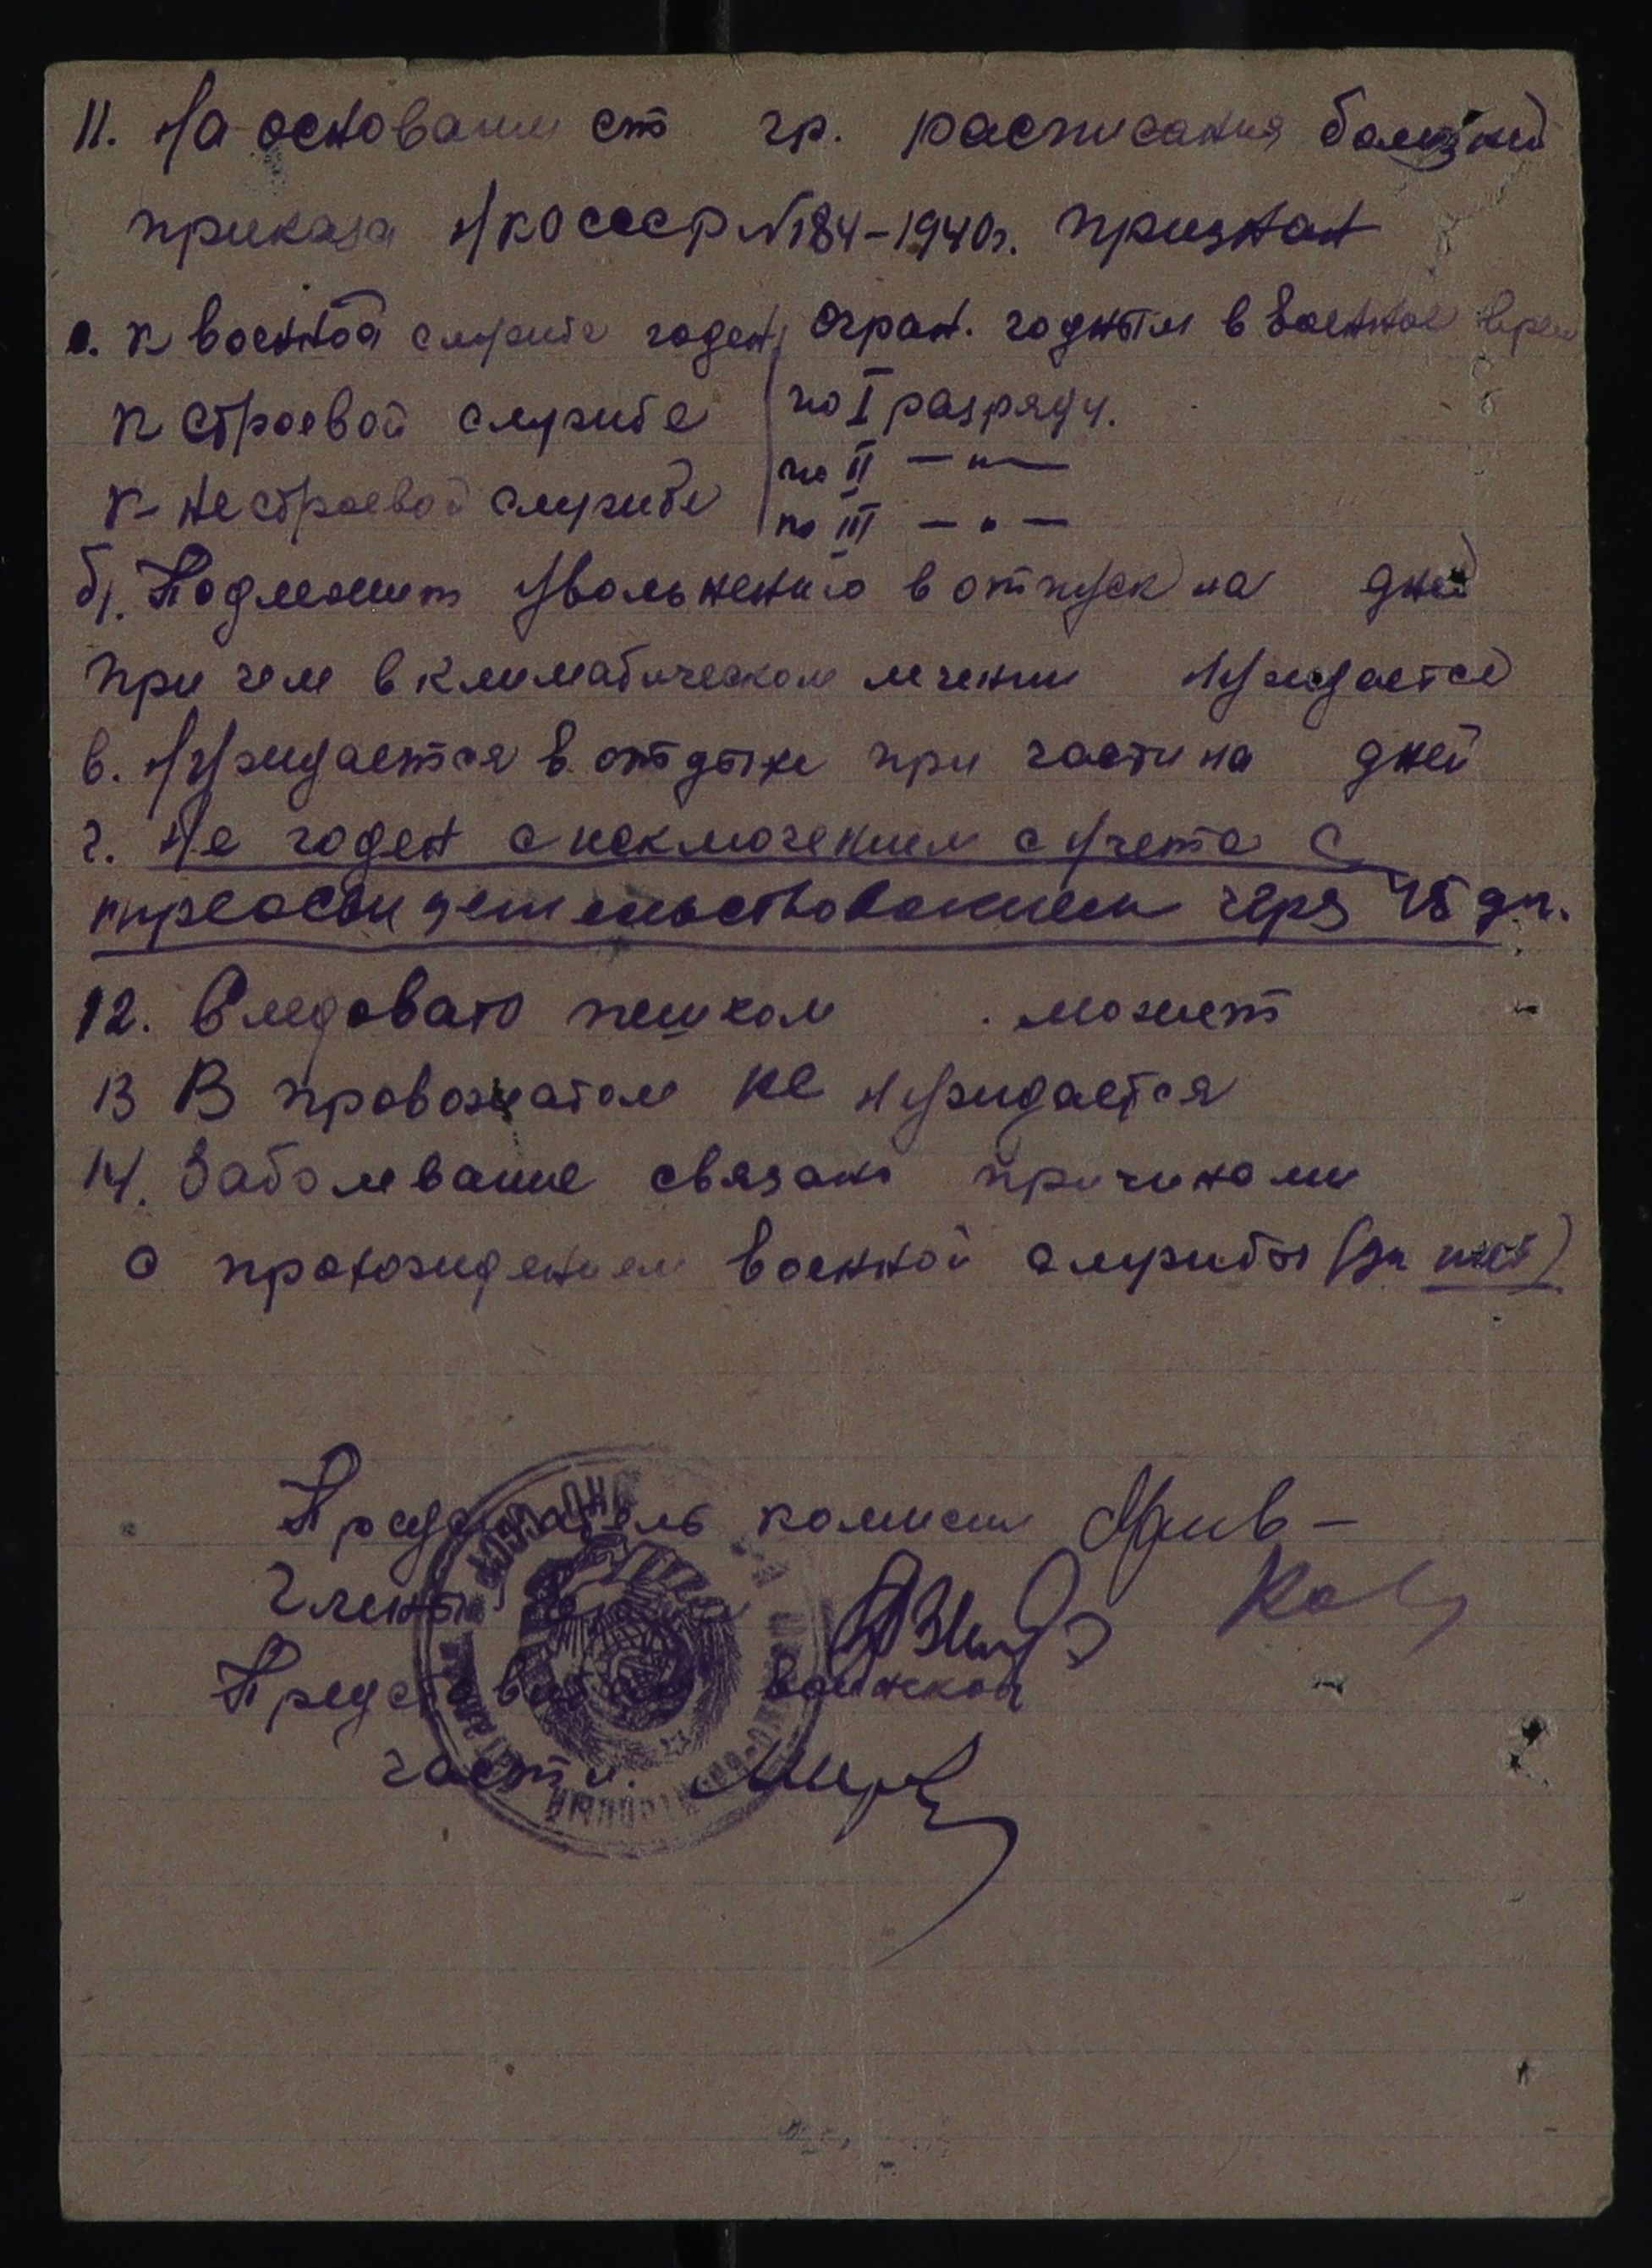 11. На основании ст гр. расписания болезней
приказа НКО СССР №184-1940г. признан
а. к военной службе годен, огран. годным в военное врем
к строевой службе по I разряду.
к нестроевой службе по II — " —
по III — " —
б). Подлежит увольнению в отпуск на дней
при чем в климатическом лечении нуждается
в. Нуждается в отдыхе при части на дней
г. Не годен с исключением с учета с
переосвидетельствованием через 45 дн.
12. Следовать пешком может
13 В провожатом не нуждается
14. Заболевание связано причинами
с прохождением военной службы
Председатель комиссии
Члены
Представитель воинской
части.